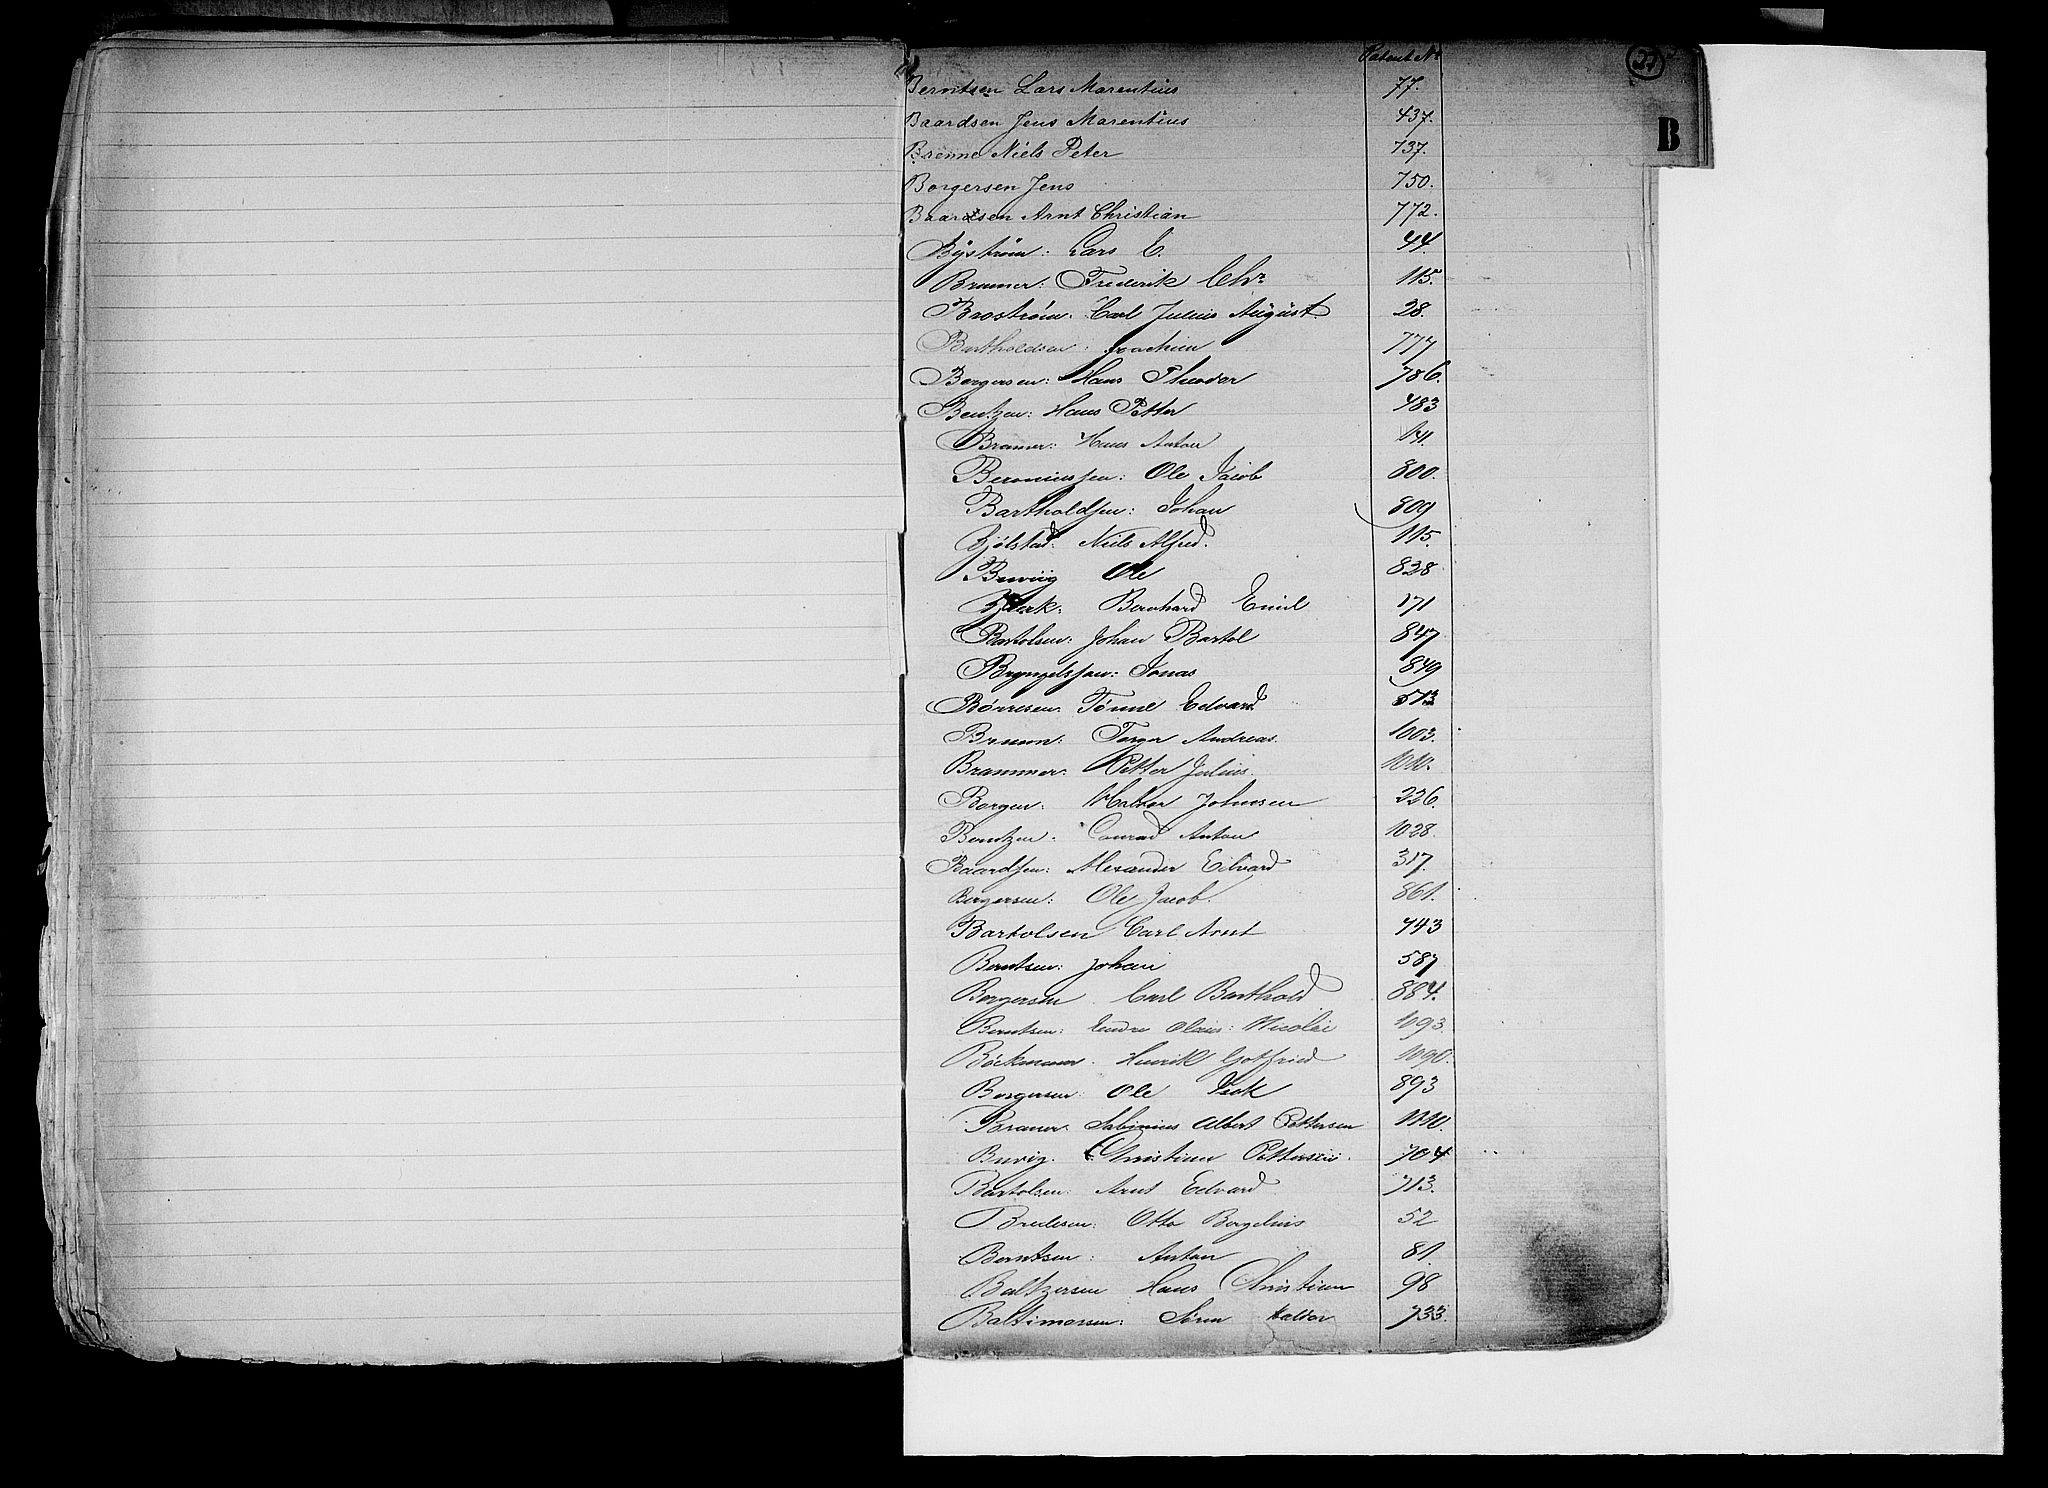 Patent No
27
B
Berntsen Lars Marentius 77.
Baardsen Jens Marentius 437.
Brenne Niels Peter 737.
Borgersen Jens 750.
Baardsen Arnt Christian 772.
Byström: Lars E. 44.
Bramer: Frederik Chr 115.
Broström: Carl Julius August 28.
Bartholdsen: Joachim 777
Borgersen: Hans Theodor 786.
Bentzen: Hans Petter 483
Bramer: Hans Anton 141.
Beroniussen: Ole Jacob 800.
Bartholdsen: Johan 809
Bjølstad: Niels Alfred. 115.
Buviig Ole 828
Bernhard Emil 171
Bartolsen: Johan Bartol 847
Bryngelssen: Jonas 849
Børresen: Tönne Edvard 513
Bruun: Torger Andreas. 1003.
Brammer: Petter Julius.
Borgen: Halvor Johnsen 226.
Berntzen: Conrad Anton 1028.
Baardsen: Alexander Edvard 317.
Borgersen: Ole Jacob. 861.
Bartolsen Carl Arnt 743
Berntsen: Johan 587
Borgersen Carl Barthold 884.
Berntsen: Olaus: Nicolai 1093.
Böckmann Henrik Gotfried 1090.
Borgersen: Ole Isak 893
Bramer Albert Pettersen
Buvig. Christian Pettersen. 704
Bartolsen: Arnt Edvard 713.
Bredesen: Otto Bergelius 52
Berntsen: Anton 81.
Baltzersen Hans Christian 98
Baltimorsen: Sören Haldor 733.